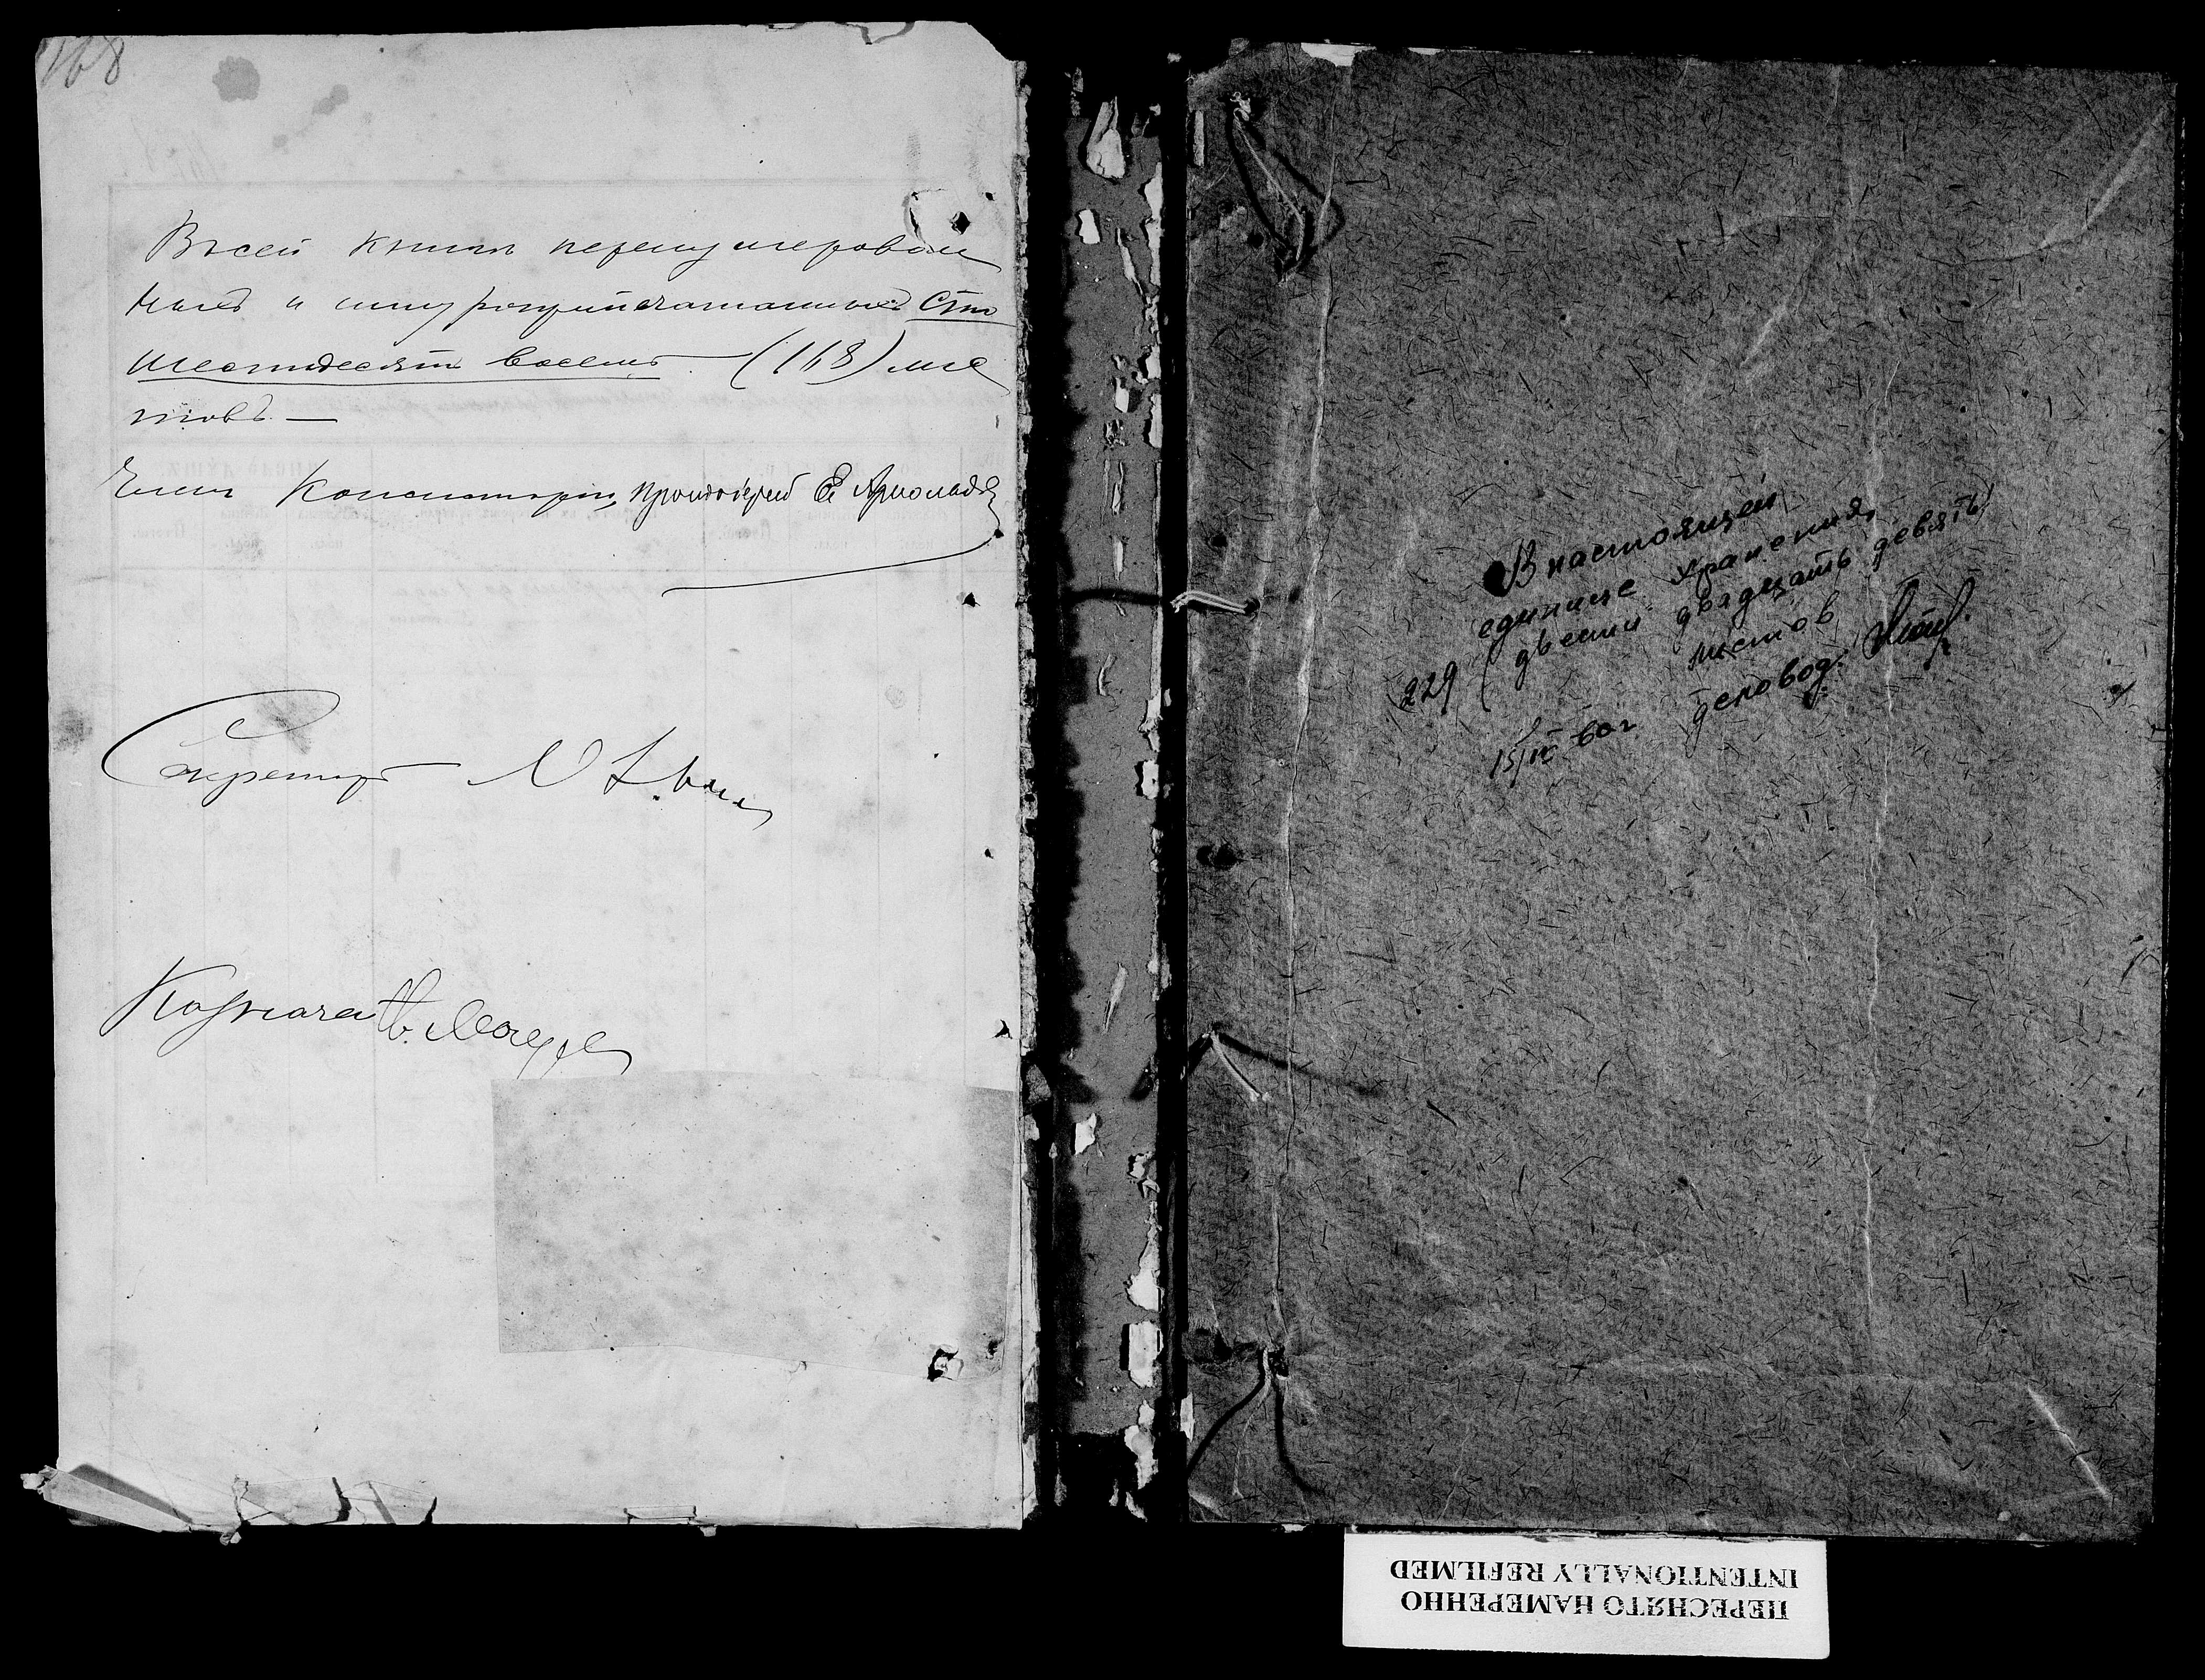 168
Въ сей книгѣ перенумерован
ныхъ и шнуроприпечатанныхъ Сто
шестьдесятъ восемь (168) лис
товъ.—
Членъ Консисторіи, Протоіерей
Секретарь
Казначей
В настоящей
единице хранения,
229 (двести двадцать девять)
листов
15/IV 60г деловод.
ПЕРЕСНЯТО НАМЕРЕННО
INTENTIONALLY REFILMED